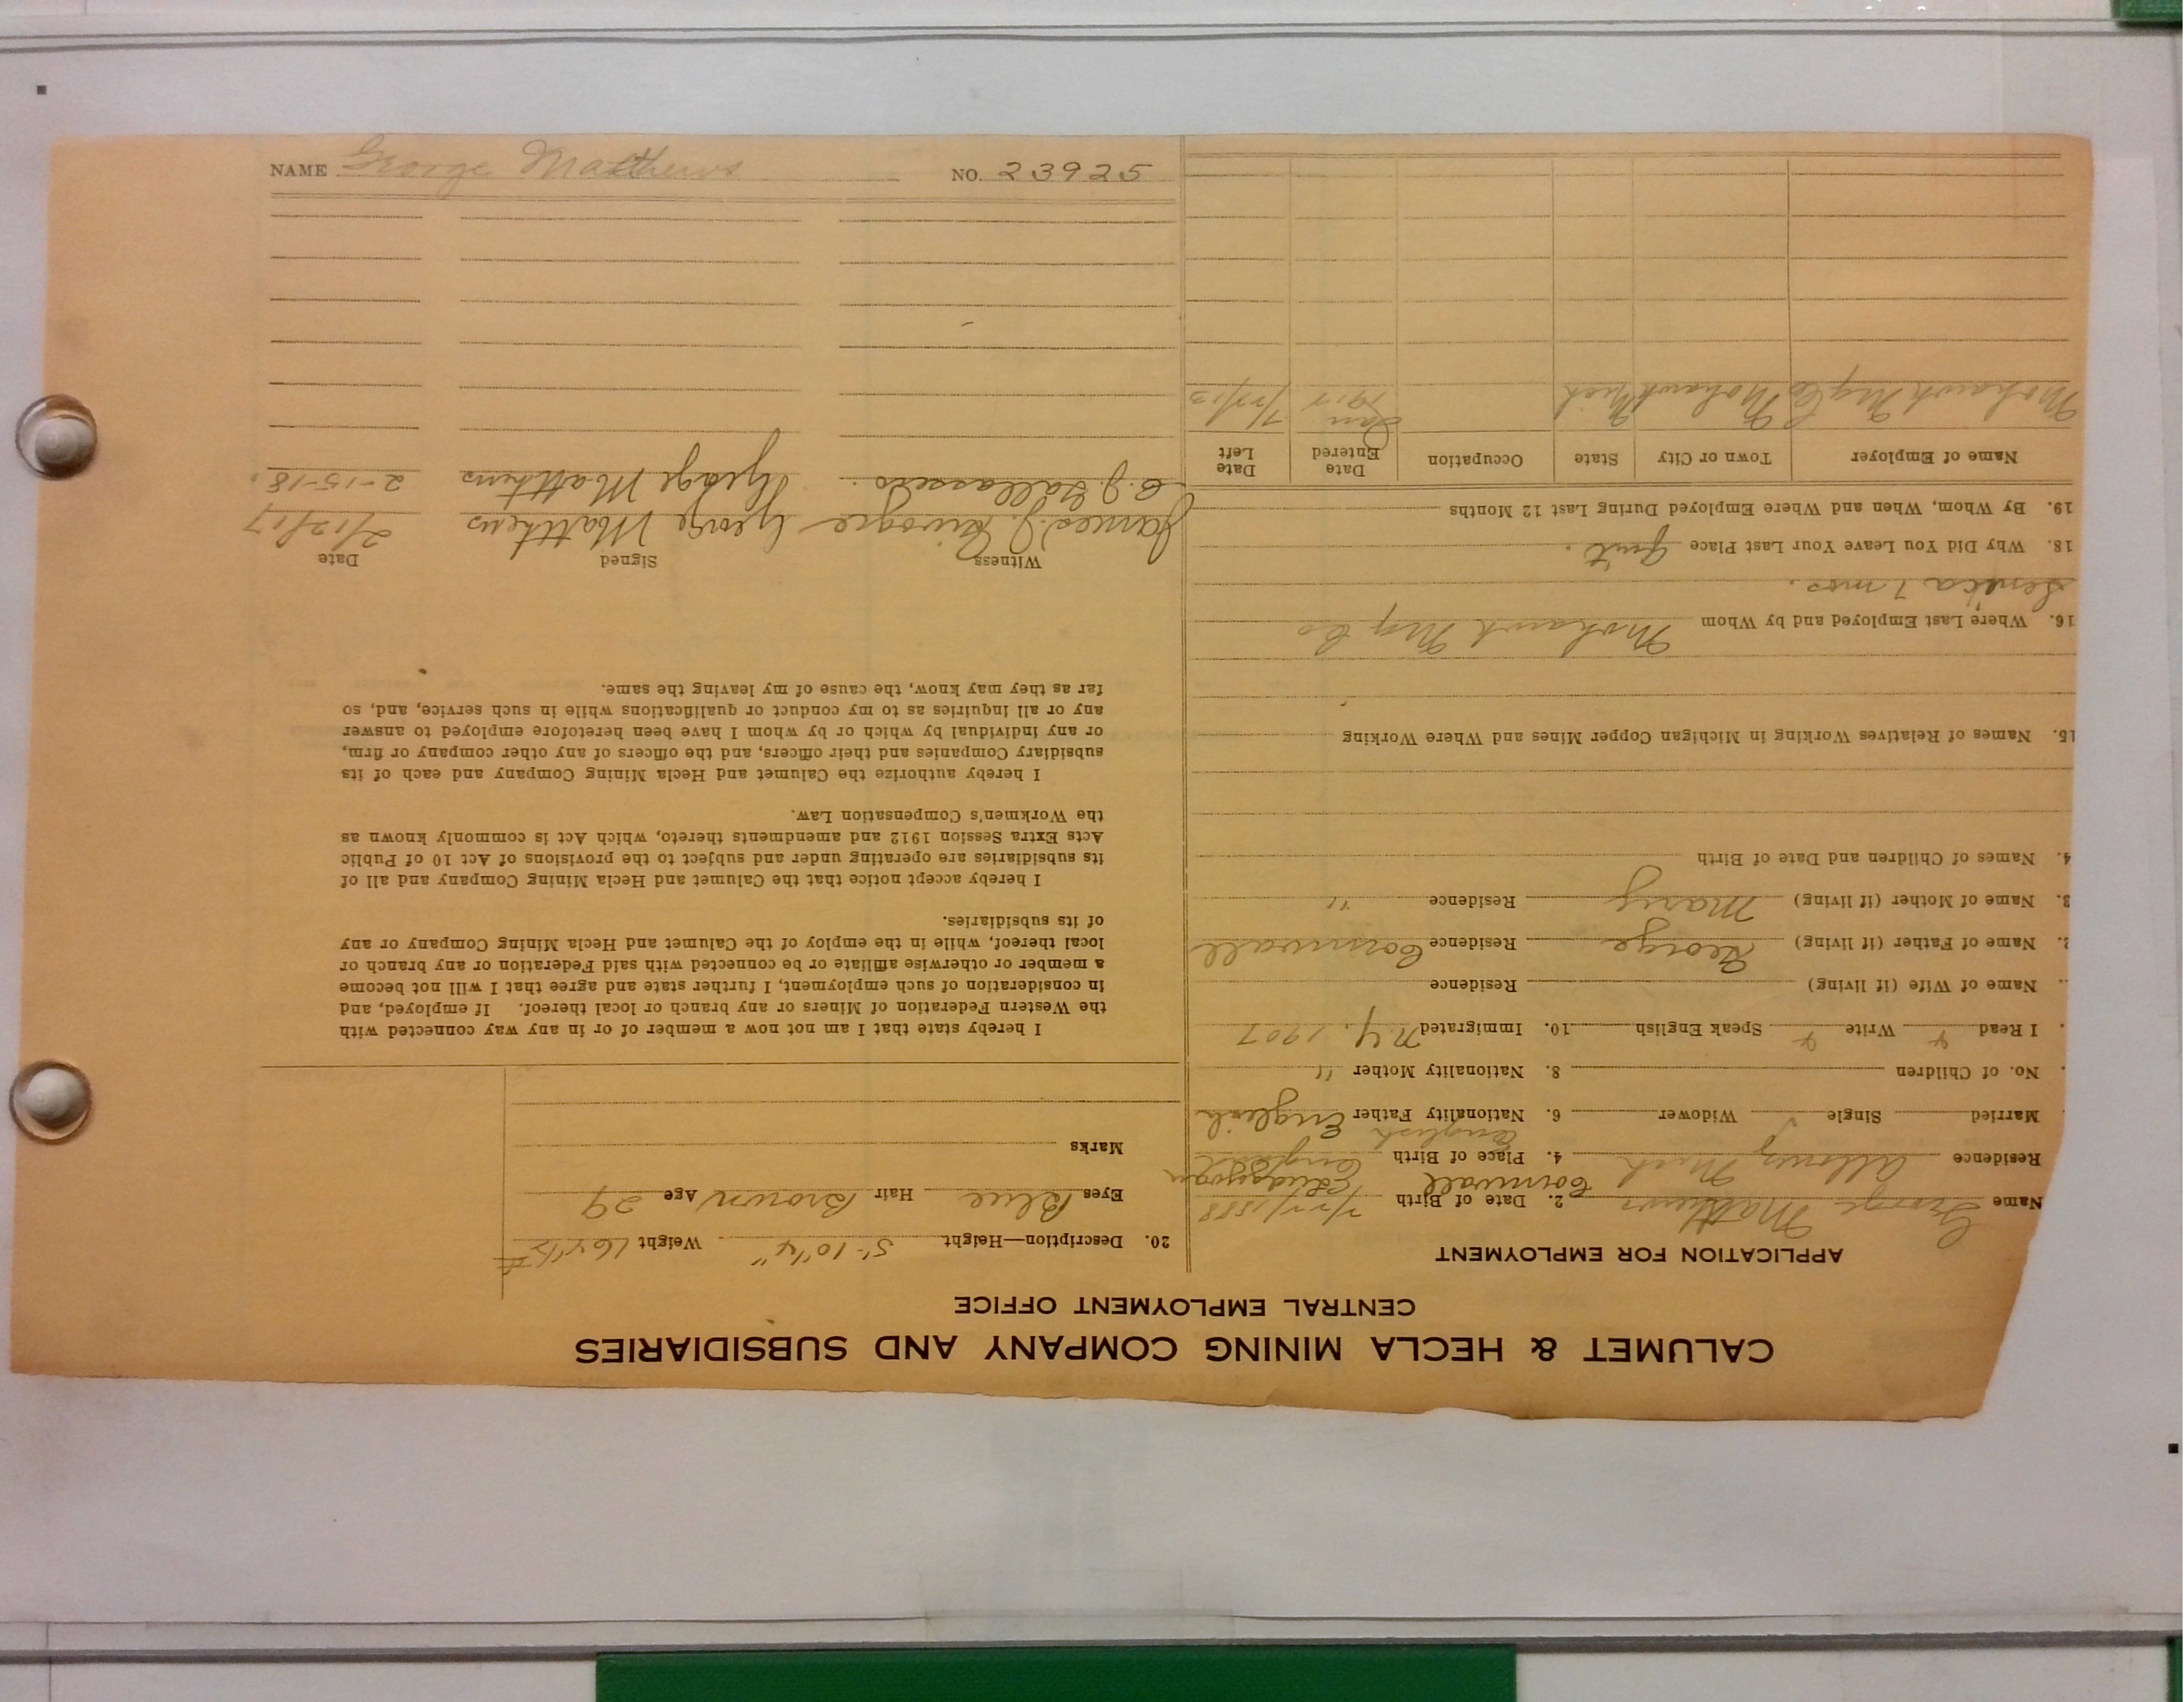 NAME George Matthews NO. 23925
CALUMET & HECLA MINING COMPANY AND SUBSIDIARIES
CENTRAL EMPLOYMENT OFFICE
APPLICATION FOR EMPLOYMENT
Name George Matthews 2. Date of Birth 1888
Cornwall
Residence Allouez Mich 4. Place of Birth England
English
Married Single Widower 6. Nationality Father English
No. of Children 8. Nationality Mother "
I Read Write Speak English 10. Immigrated N.Y. 1907
Name of Wife (if living) Residence
2. Name of Father (if living) George Residence Cornwall
3. Name of Mother (if living) Mary Residence "
4. Names of Children and Date of Birth
15. Names of Relatives Working in Michigan Copper Mines and Where Working
16. Where Last Employed and by Whom Mohawk Mg Co
Seneca 7 mos.
18. Why Did You Leave Your Last Place Quit.
19. By Whom, When and Where Employed During Last 12 Months
Name of Employer Town or City State Occupation Date Entered Date Left
Mohawk Mg Co Mohawk Mich Jan
20. Description—Height 5'-10 1/4" Weight
Eyes Blue Hair Brown Age 29
Marks
I hereby state that I am not now a member of or in any way connected with
the Western Federation of Miners or any branch or local thereof. If employed, and
in consideration of such employment, I further state and agree that I will not become
a member or otherwise affiliate or be connected with said Federation or any branch or
local thereof, while in the employ of the Calumet and Hecla Mining Company or any
of its subsidiaries.
I hereby accept notice that the Calumet and Hecla Mining Company and all of
its subsidiaries are operating under and subject to the provisions of Act 10 of Public
Acts Extra Session 1912 and amendments thereto, which Act is commonly known as
the Workmen's Compensation Law.
I hereby authorize the Calumet and Hecla Mining Company and each of its
subsidiary Companies and their officers, and the officers of any other company or firm,
or any individual by which or by whom I have been heretofore employed to answer
any or all inquiries as to my conduct or qualifications while in such service, and, so
far as they may know, the cause of my leaving the same.
Witness Signed Date
James J. George Matthews 2/12/17
George Matthews 2-15-18.